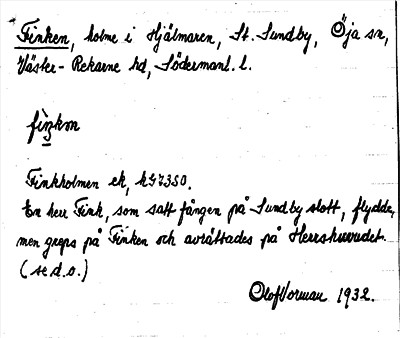 Finken, holme i Hjälmaren, St. Sundby, Öja sn,
Väster-Rekarne hd, Södermanl. l.
Finkholmen ek, k57350.
En herr Fink, som satt fången på Sundby slott, flydde,
men greps på Finken och avrättades på Herrshuvudet.
(se d.o.)
Olof Vorman 1932.